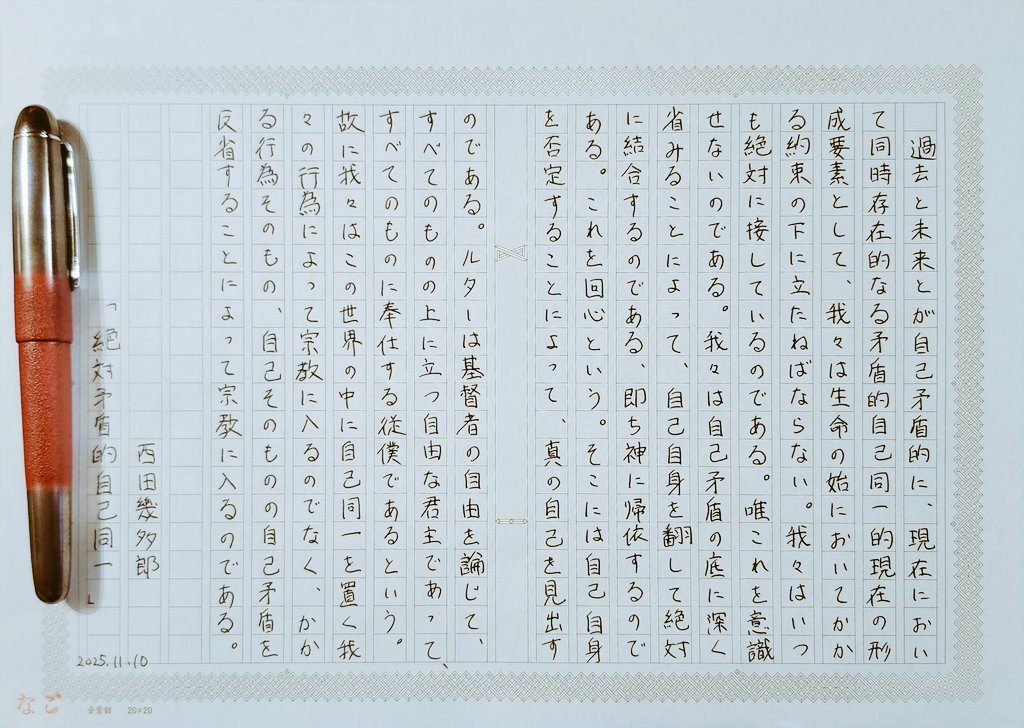 過去と未来とが自己矛盾的に、現在におい
て同時存在的なる矛盾的自己同一的現在の形
成要素として、我々は生命の始においてかか
る約束の下に立たねばならない。我々はいつ
も絶対に接しているのである。唯これを意識
せないのである。我々は自己矛盾の底に深く
省みることによって、自己自身を翻して絶対
に結合するのである、即ち神に帰依するので
ある。これを回心という。そこには自己自身
を否定することによって、真の自己を見出す
のである。ルターは基督者の自由を論じて、
すべてのものの上に立つ自由な君主であって、
すべてのものに奉仕する従僕であるという。
故に我々はこの世界の中に自己同一を置く我
々の行為によって宗教に入るのでなく、かか
る行為そのもの、自己そのものの自己矛盾を
反省することによって宗教に入るのである。
西田幾多郎
「絶対矛盾的自己同一」
2025.11.10
20×20